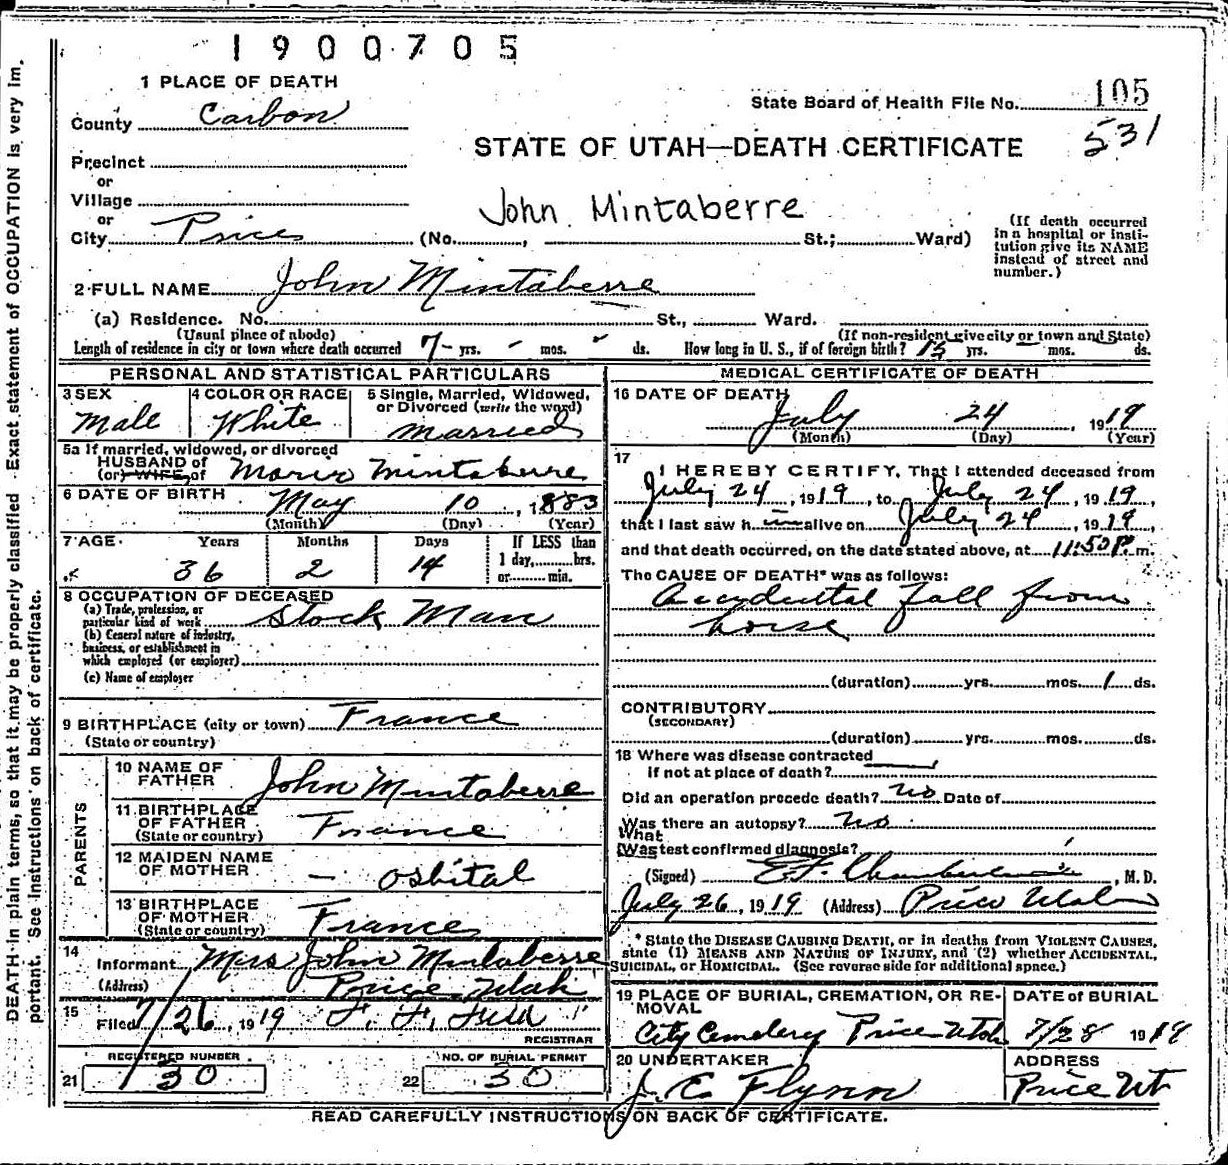 1900705
1 PLACE OF DEATH
State Board of Health File No. 105
County Carbon
531
STATE OF UTAH—DEATH CERTIFICATE
Precinct
or
Village
John Mintaberre
or
City Price (No. , St.; Ward)
(If death occurred in a hospital or institution give its NAME instead of street and number.)
2 FULL NAME John Mintaberre
(a) Residence. No. St., Ward.
(Usual place of abode) (If non-resident give city or town and State)
Length of residence in city or town where death occurred 7 - yrs. - mos. - ds. How long in U. S., if of foreign birth? 15 yrs. mos. ds.
PERSONAL AND STATISTICAL PARTICULARS
3 SEX Male
4 COLOR OR RACE White
5 Single, Married, Widowed, or Divorced (write the word) Married
5a If married, widowed, or divorced
HUSBAND of
(or) WIFE of Marie Mintaberre
6 DATE OF BIRTH May 10, 1883
(Month) (Day) (Year)
7 AGE Years Months Days If LESS than
36 2 14 1 day, hrs.
or min.
8 OCCUPATION OF DECEASED
(a) Trade, profession, or particular kind of work Stock Man
(b) General nature of industry, business, or establishment in which employed (or employer)
(c) Name of employer
9 BIRTHPLACE (city or town) France
(State or country)
PARENTS
10 NAME OF FATHER John Mintaberre
11 BIRTHPLACE OF FATHER France
(State or country)
12 MAIDEN NAME OF MOTHER — Osbital
13 BIRTHPLACE OF MOTHER France
(State or country)
14 Informant Mrs John Mintaberre
(Address) Price Utah
15 Filed 7/26, 1919 F. F. Fields
REGISTRAR
REGISTERED NUMBER NO. OF BURIAL PERMIT
21 30 22 30
MEDICAL CERTIFICATE OF DEATH
16 DATE OF DEATH
July 24 1919
(Month) (Day) (Year)
17 I HEREBY CERTIFY, That I attended deceased from
July 24, 1919, to July 24, 1919,
that I last saw him alive on July 24, 1919,
and that death occurred, on the date stated above, at 11:50 P. m.
The CAUSE OF DEATH* was as follows:
Accidental fall from
horse
(duration) yrs. mos. 1 ds.
CONTRIBUTORY
(SECONDARY)
(duration) yrs. mos. ds.
18 Where was disease contracted
if not at place of death?
Did an operation precede death? no Date of
Was there an autopsy? no
What
Was test confirmed diagnosis?
(Signed) , M. D.
July 26, 1919 (Address) Price Utah
* State the DISEASE CAUSING DEATH, or in deaths from VIOLENT CAUSES,
state (1) MEANS AND NATURE OF INJURY, and (2) whether ACCIDENTAL,
SUICIDAL, or HOMICIDAL. (See reverse side for additional space.)
19 PLACE OF BURIAL, CREMATION, OR REMOVAL DATE of BURIAL
City Cemetery Price Utah 7/28 1919
20 UNDERTAKER ADDRESS
J. E. Flynn Price Ut
READ CAREFULLY INSTRUCTIONS ON BACK OF CERTIFICATE.
DEATH in plain terms, so that it may be properly classified. Exact statement of OCCUPATION is very important. See instructions on back of certificate.